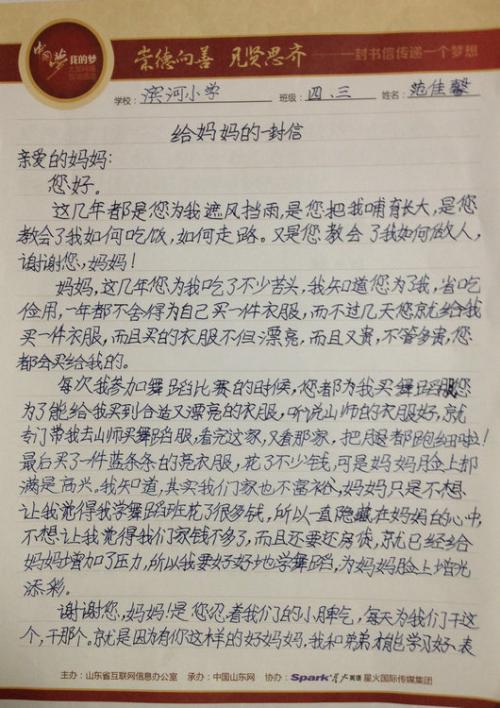 中国梦 我的梦
崇德向善 见贤思齐 一封书信传递一个梦想
学校: 滨河小学 班级: 四、三 姓名: 范佳馨
给妈妈的一封信
亲爱的妈妈:
您好。
这几年都是您为我遮风挡雨,是您把我哺育长大,是您
教会了我如何吃饭,如何走路。又是您教会了我如何做人,
谢谢您,妈妈!
妈妈,这几年您为我吃了不少苦头,我知道您为了我,省吃
俭用,一年都不舍得为自己买一件衣服,而不过几天您就给我
买一件衣服,而且买的衣服不但漂亮,而且又贵,不管多贵,您
都会买给我的。
每次我参加舞蹈比赛的时候,您都为我买舞蹈服您
为了能给我买到合适又漂亮的衣服,听说山师的衣服好,就
专门带我去山师买舞蹈服,看完这家,又看那家,把腿都跑细啦!
最后买了一件蓝条条的亮衣服,花了不少钱,可是妈妈脸上却
满是高兴。我知道,其实我们家也不富裕,妈妈只是不想
让我觉得我学舞蹈班花了很多钱,所以一直隐藏在妈妈的心中,
不想让我觉得我们家钱不多了,而且还要还房贷,就已经给
妈妈增加了压力,所以我要好好地学舞蹈,为妈妈脸上增光
添彩。
谢谢您,妈妈!是您忍着我们的小脾气,每天为我们干这
个,干那个。就是因为有你这样的好妈妈,我和弟弟才能学习好、表
主办:山东省互联网信息办公室 承办:中国山东网 协办:Spark 星火英语 星火国际传媒集团